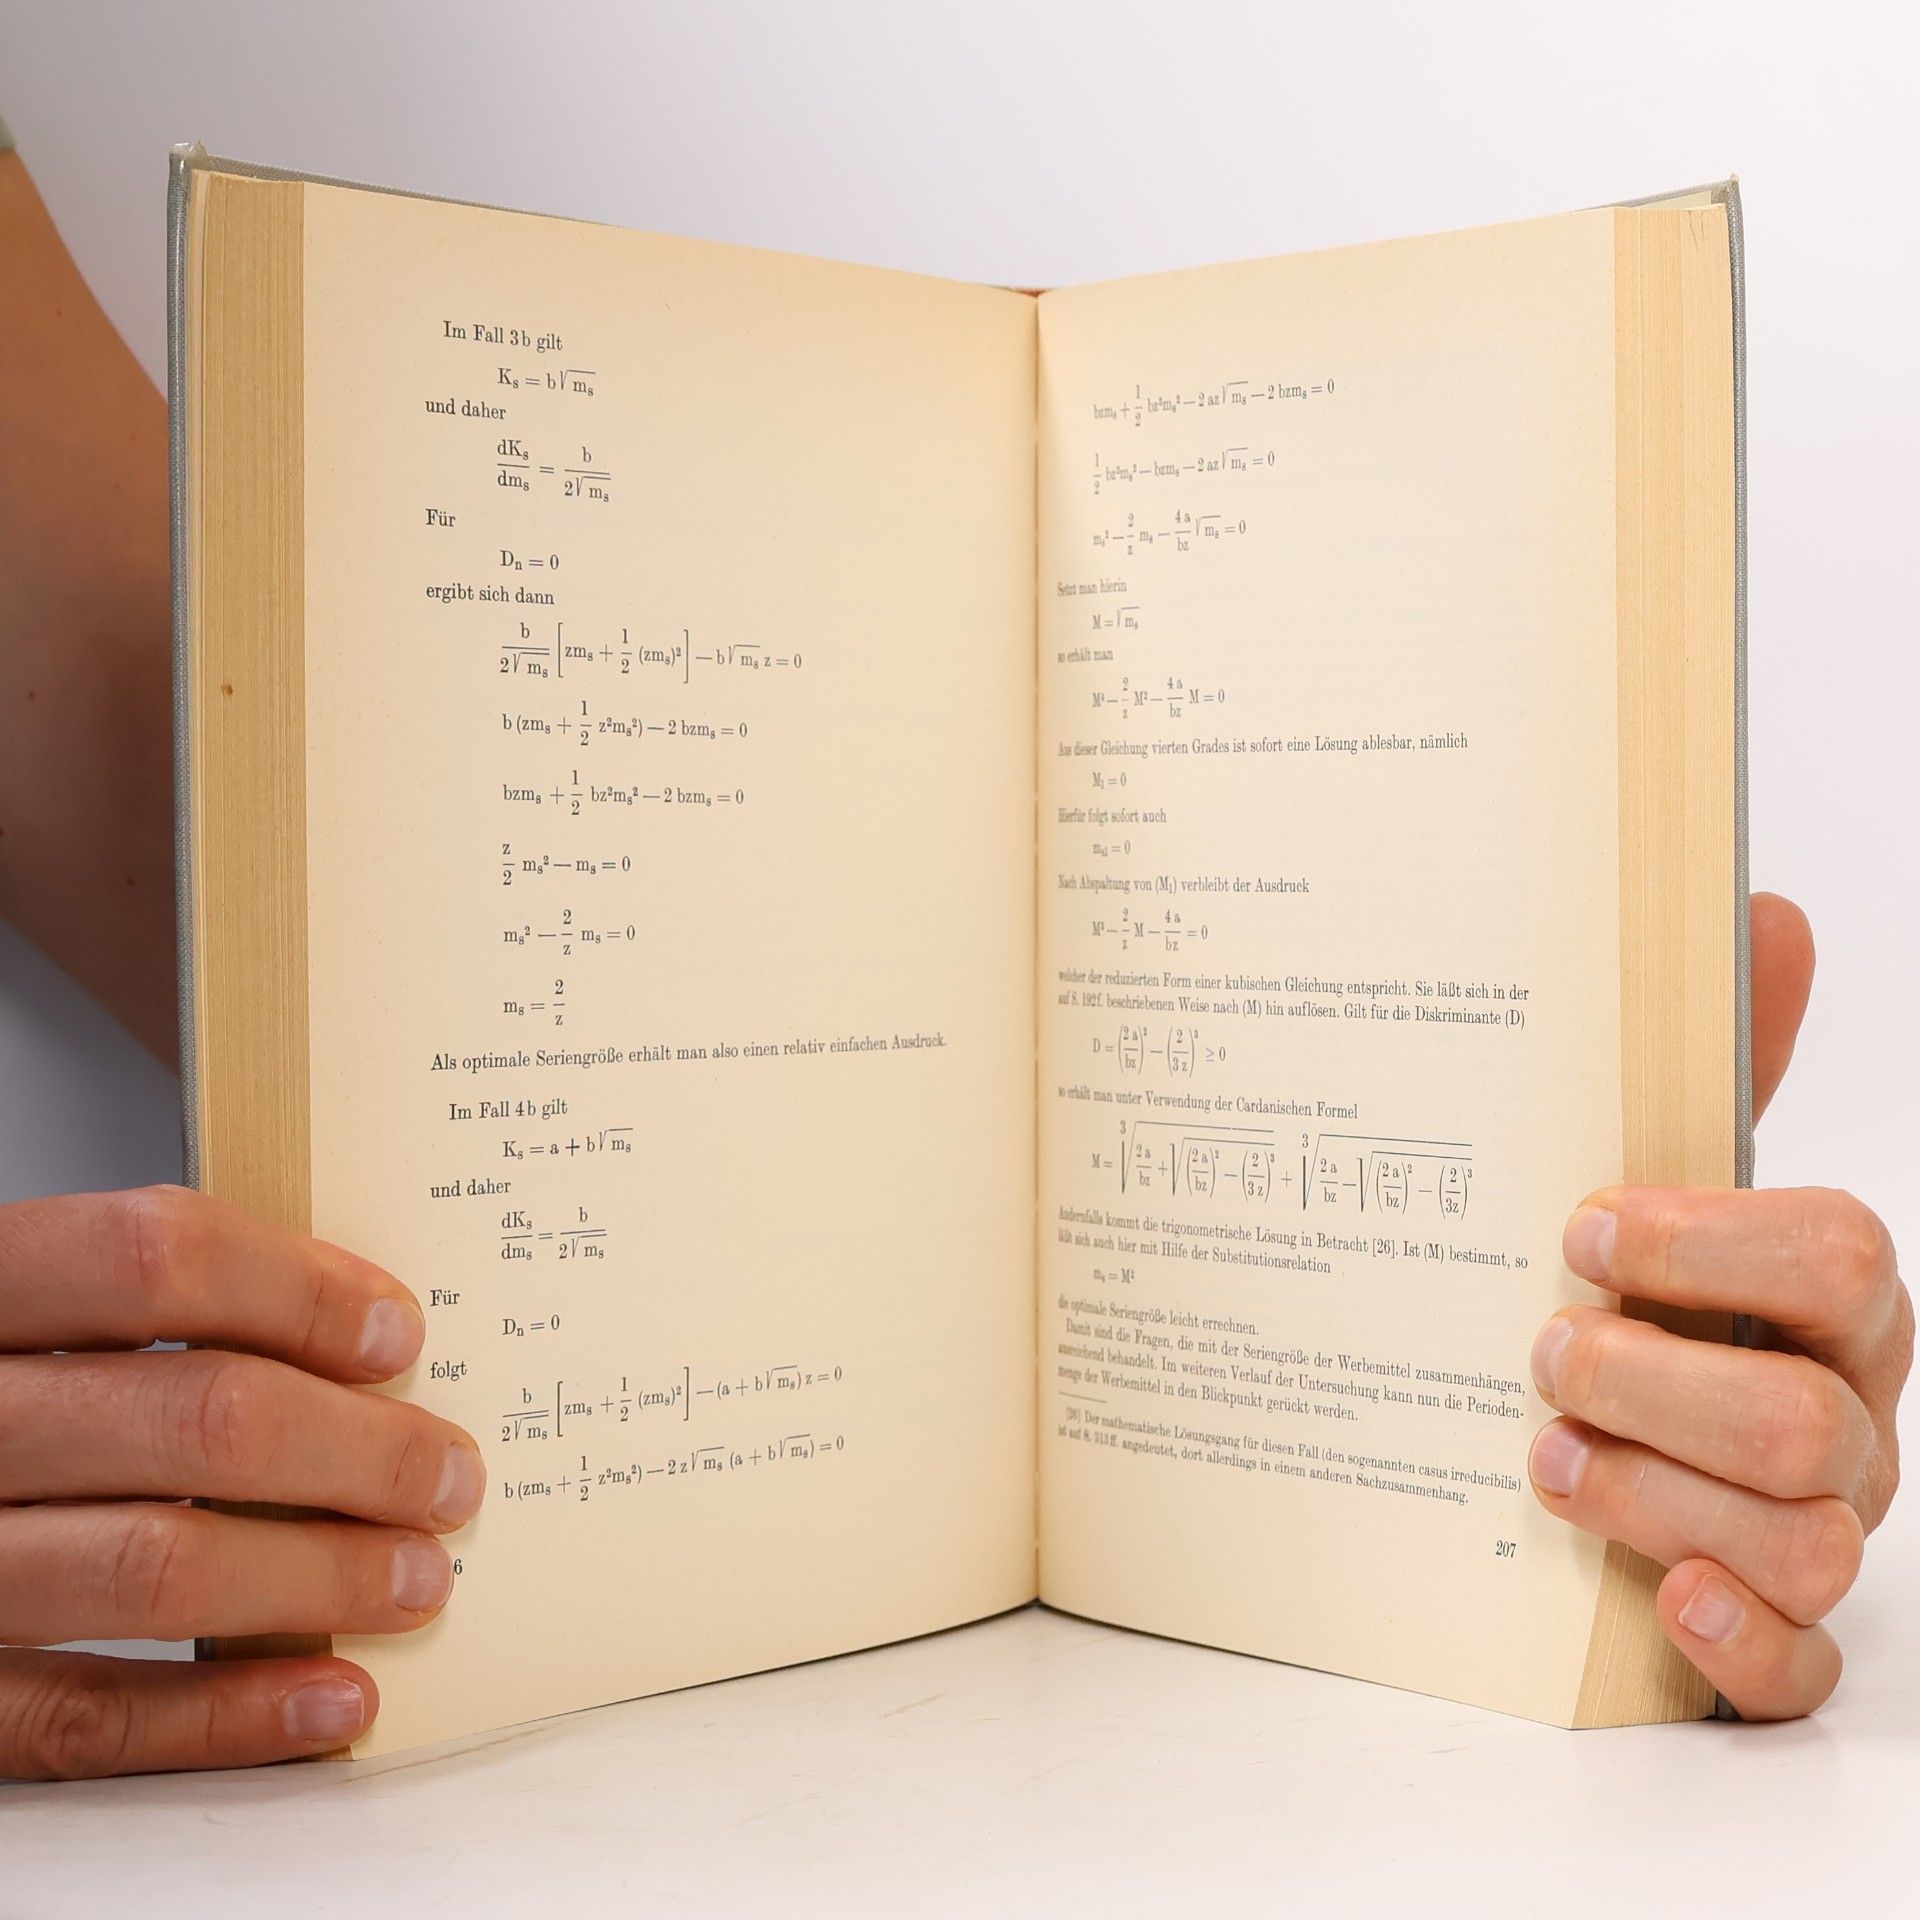 Im Fall 3b gilt
Kₛ = b√mₛ
und daher
dKₛ/dmₛ = b/(2√mₛ)
Für
Dₙ = 0
ergibt sich dann
b/(2√mₛ) [zmₛ + 1/2 (zmₛ)²] — b√mₛ z = 0
b (zmₛ + 1/2 z²mₛ²) — 2 bzmₛ = 0
bzmₛ + 1/2 bz²mₛ² — 2 bzmₛ = 0
z/2 mₛ² — mₛ = 0
mₛ² — 2/z mₛ = 0
mₛ = 2/z
Als optimale Seriengröße erhält man also einen relativ einfachen Ausdruck.
Im Fall 4b gilt
Kₛ = a + b√mₛ
und daher
dKₛ/dmₛ = b/(2√mₛ)
Für
Dₙ = 0
folgt
b/(2√mₛ) [zmₛ + 1/2 (zmₛ)²] — (a + b√mₛ) z = 0
b (zmₛ + 1/2 z²mₛ²) — 2 z√mₛ (a + b√mₛ) = 0
6
bzmₛ + 1/2 bz²mₛ² — 2 az√mₛ — 2 bzmₛ = 0
1/2 bz²mₛ² — bzmₛ — 2 az√mₛ = 0
mₛ² — 2/z mₛ — 4a/bz √mₛ = 0
Setzt man hierin
M = √mₛ
so erhält man
M⁴ — 2/z M² — 4a/bz M = 0
Aus dieser Gleichung vierten Grades ist sofort eine Lösung ablesbar, nämlich
M₁ = 0
Hierfür folgt sofort auch
mₛ₁ = 0
Nach Abspaltung von (M₁) verbleibt der Ausdruck
M³ — 2/z M — 4a/bz = 0
welcher der reduzierten Form einer kubischen Gleichung entspricht. Sie läßt sich in der
auf S. 192f. beschriebenen Weise nach (M) hin auflösen. Gilt für die Diskriminante (D)
D = (2a/bz)² — (2/3z)³ ≥ 0
so erhält man unter Verwendung der Cardanischen Formel
M = ³√(2a/bz + √((2a/bz)² — (2/3z)³)) + ³√(2a/bz — √((2a/bz)² — (2/3z)³))
Andernfalls kommt die trigonometrische Lösung in Betracht [26]. Ist (M) bestimmt, so
läßt sich auch hier mit Hilfe der Substitutionsrelation
mₛ = M²
die optimale Seriengröße leicht errechnen.
Damit sind die Fragen, die mit der Seriengröße der Werbemittel zusammenhängen,
ausreichend behandelt. Im weiteren Verlauf der Untersuchung kann nun die Perioden-
menge der Werbemittel in den Blickpunkt gerückt werden.
[26] Der mathematische Lösungsgang für diesen Fall (den sogenannten casus irreducibilis)
ist auf S. 313ff. angedeutet, dort allerdings in einem anderen Sachzusammenhang.
207